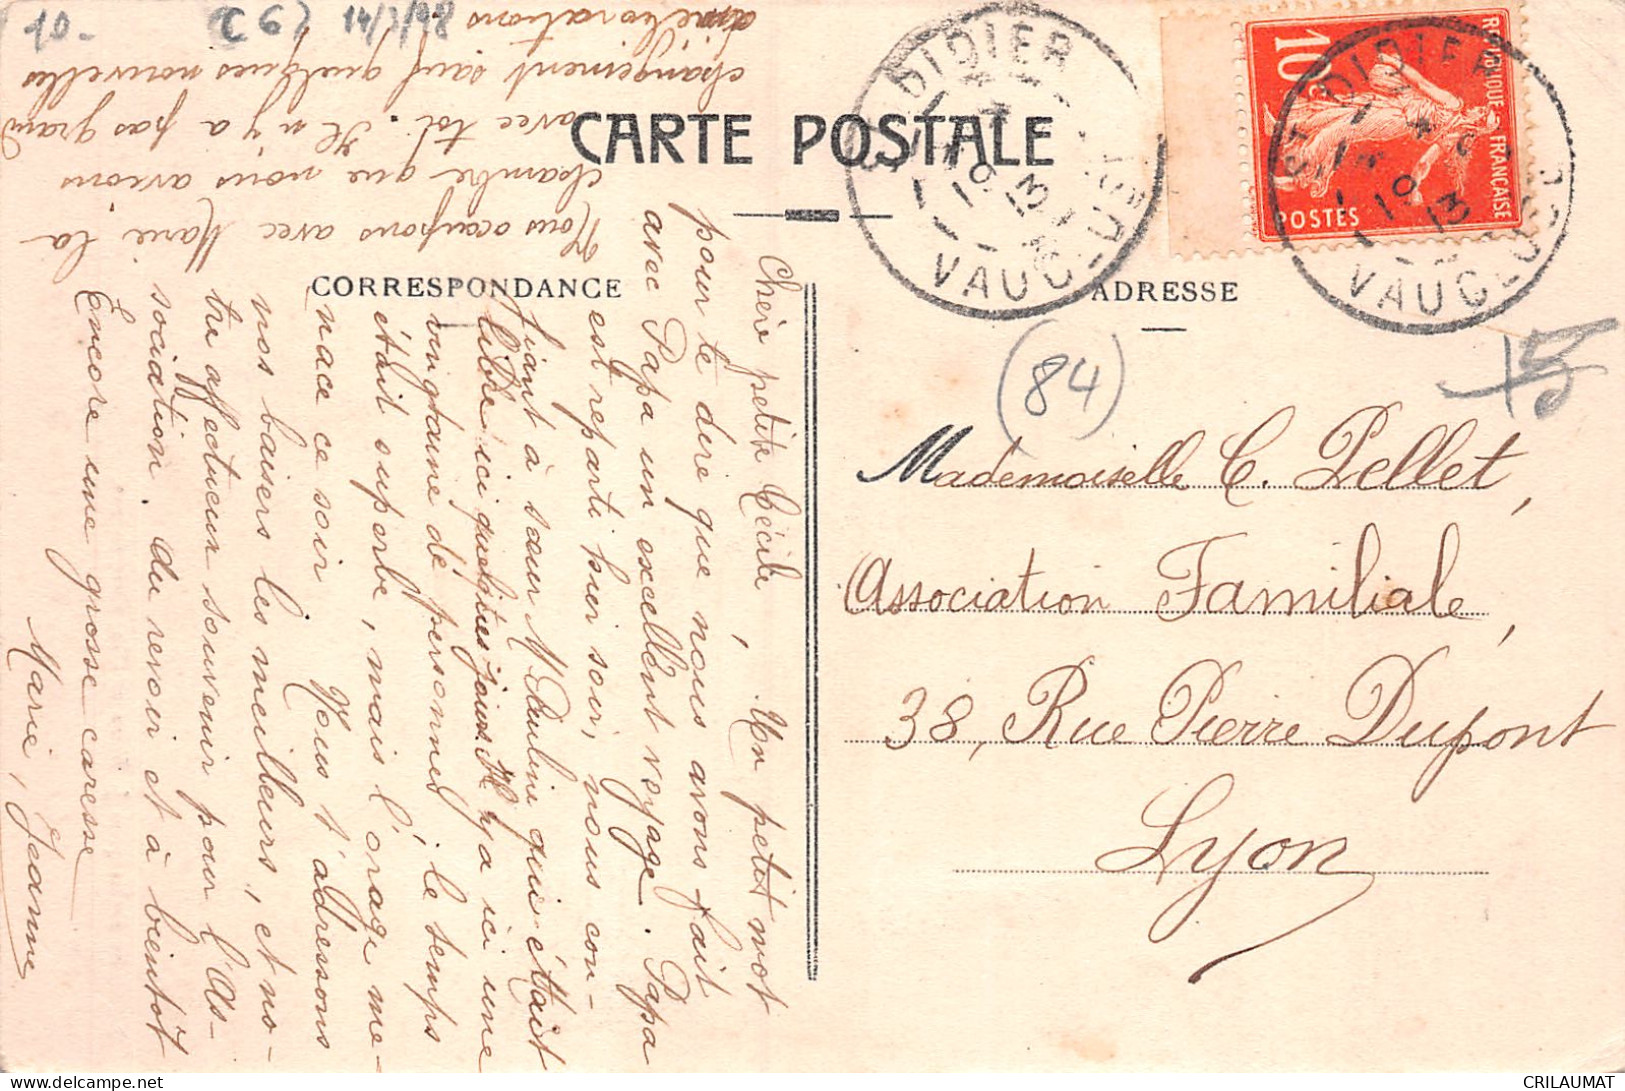 10-
C 62 14/3/98
CARTE POSTALE
CORRESPONDANCE
ADRESSE
ST DIDIER
1
19
13
VAUCLUSE
ST DIDIER
19
13
VAUCLUSE
REPUBLIQUE FRANÇAISE
10c
POSTES
(84)
15
Mademoiselle C. Pellet,
Association Familiale,
38, Rue Pierre Dupont
Lyon
Chère petite Cécile, Un petit mot
pour te dire que nous avons fait
avec Papa un excellent voyage. Papa
est reparti hier soir, nous con-
fiant à sœur M Pauline qui était
libre ici quelques jours. Il y a ici une
vingtaine de personnes, le temps
était superbe, mais l'orage me-
nace ce soir. Nous t'adressons
nos baisers les meilleurs, et no-
tre affectueux souvenir pour l'As-
sociation. Au revoir et à bientôt
Encore une grosse caresse
Marie, Jeanne
Nous occupons avec Marie la
chambre que nous avions
avec toi. Il n'y a pas grand
changement sauf quelques nouvelles
améliorations
CRILAUMAT